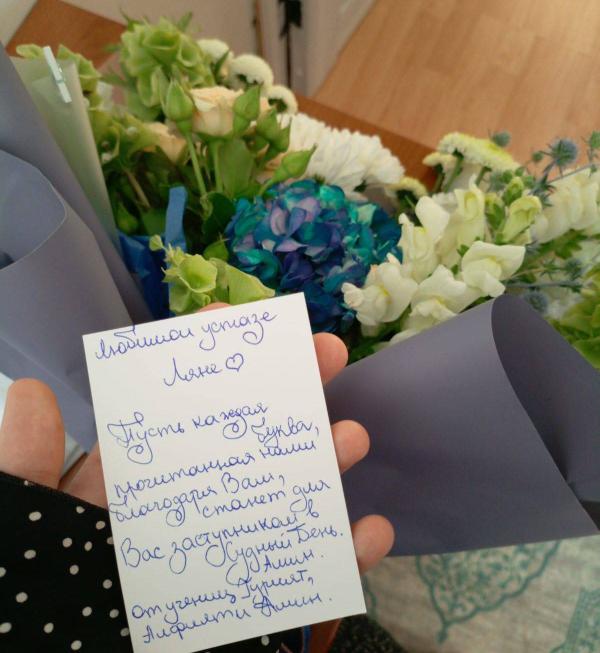 Любимой устазе
Ляне ♡
Пусть каждая
буква,
прочитанная нами
благодаря Вам,
станет для
Вас заступником в
Судный День.
Амин.
от учениц Гурият,
Алфияти Амин.